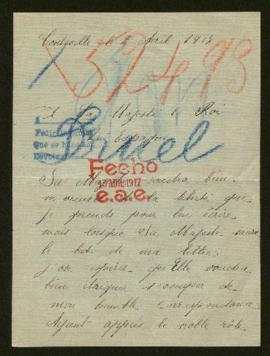 Contreville le 4 Avril 1917
52493
A Sa Majesté le Roi
d'Espagne
Bruel
Fecho
ABR. 1917
e.a.e.
Sa Majesté voudra bien
m'excuser de la liberté que
je prends pour lui écrire
mais lorsque Sa Majesté saura
le but de ma lettre,
j'ose espérer qu'Elle voudra
bien daigner s'occuper de
mon humble correspondance.
Ayant appris le noble rôle